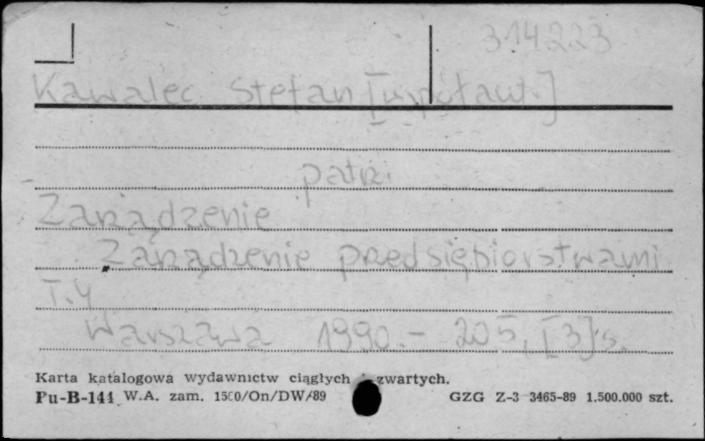 314223
Kawalec Stefan [współaut.]
patrz:
Zarządzenie
Zarządzenie przedsiębiorstwami
T.4
Warszawa 1990.- 205, [3] s.
Karta katalogowa wydawnictw ciągłych i zwartych.
Pu-B-144 W.A. zam. 1500/On/DW/89 GZG Z-3 3465-89 1.500.000 szt.